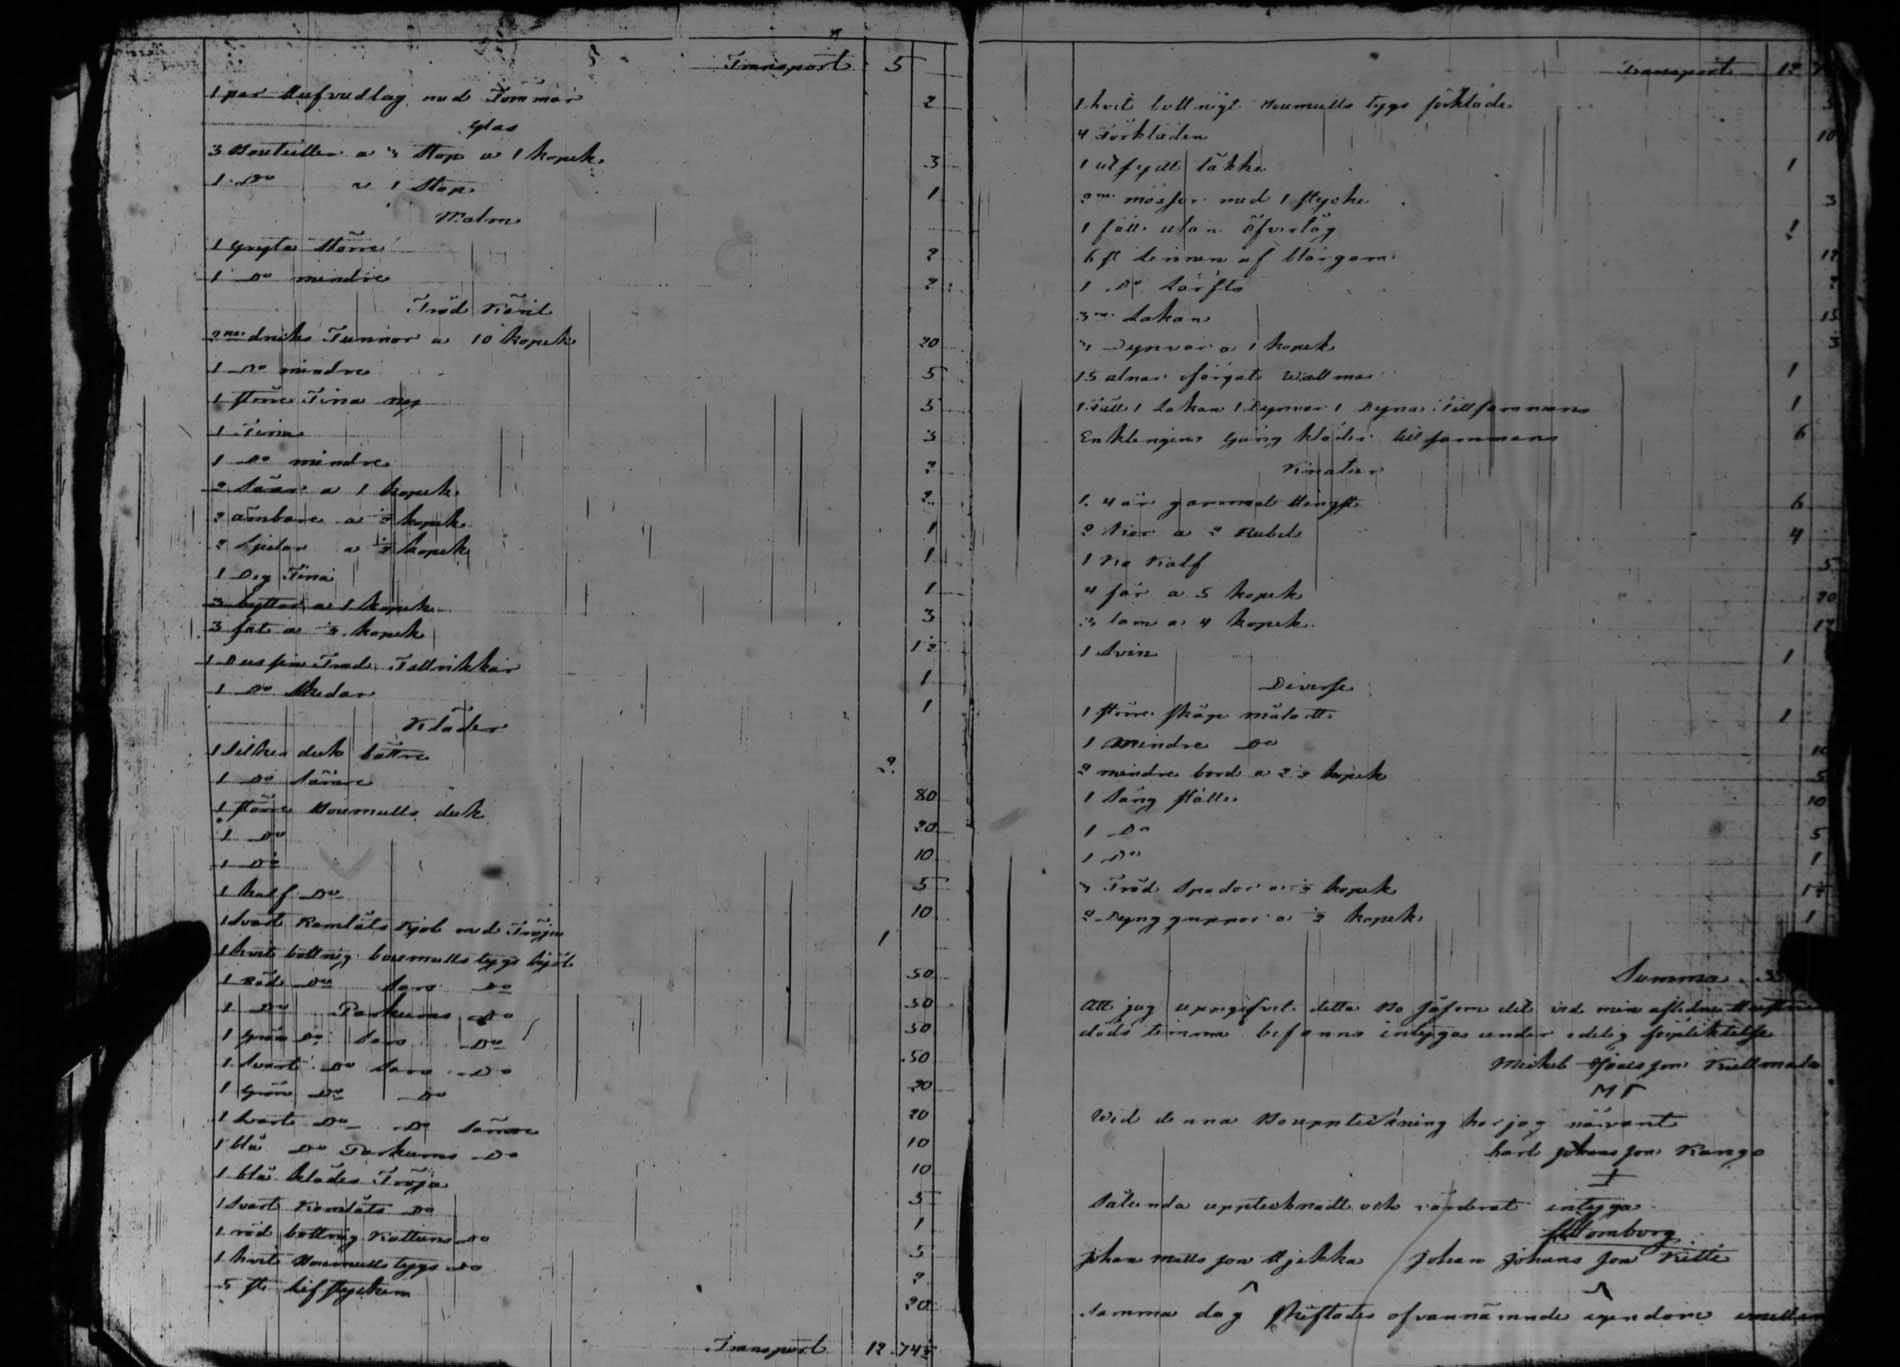 Transport 5
1 par Hufvudlag med Tömmar 2
Glas
3 Bouteiller a ½ Stop a 1 kopek 3
1 Do a 1 Stop 1
Malm
1 Gryta större 2
1 Do mindre 2
Träd Käril
2ne dricks Tunnor a 10 kopek 20
1 Do mindre 5
1 större Tina 5
1 Tina 3
1 Do mindre 2
2 Såar a 1 kopek 2
2 ämbare a ½ kopek 1
2 a ½ kopek 1
1 Deg Tina 1
3 byttor a 1 kopek 3
3 fat a ½ kopek 1½
1 Dussin Träd Tallrikkar 1
1 Do Skedar 1
Kläder
1 Silkes duk bättre 2
1 Do Sämre 80
1 större Boumulls duk 20
1 Do 10
1 Do 5
1 half Do 10
1 Svart Kamlåts Kjol med Tröja 1
1 hvit bottnig boumulls tygs kjol 50
1 Röd Do Sars Do 50
1 Do Parkums Do 50
1 Grön Do Sars Do 50
1 Svart Do Sars Do 20
1 Grön Do Do 20
1 Svart Do Do Sämre 10
1 blå Do Parkums Do 10
1 blå klädes Tröja 5
1 Svart Kamlåts Do 1
1 röd bottnig Kattuns Do 5
1 hvit Boumulls tygs Do 2
5 st lif stycken 20
Transport 12 74½
Transport 12
1 hvit bottnigt Boumulls tygs förkläde
4 Förkläden 10
1 täkke 1
2ne mössor med 1 stycke 3
1 fäll utan öfverlåg 1
6 st Linnen af blårgarn 12
1 Do Lärfts 2
3ne Lakan 15
3 Dynvar a 1 kopek 3
15 alnar ofärgat Wallmar 1
1 Fäll 1 Lakan 1 Dynvar 1 Dyna Tillsammans 1
Enklingens Gång kläder tillsammans 6
Kreatur
1 4 år gammal Hingst 6
2 Kor a 2 Rubel 4
1 Ko Kalf 5
4 får a 5 kopek 20
3 lam a 4 kopek 12
1 Svin 1
Diverse
1 större skåp målatt 1
1 mindre Do 10
2 mindre bord a 2½ kopek 5
1 Säng ställe 10
1 Do 5
1 Do 1
3 Träd Spador a ½ kopek 1½
2 Dyng greppor a ½ kopek 1
Summa
Att jag uppgifvit detta Bo såsom det vid min aflidne Hustrus
döds timma befanns intygas under edelig förpliktelse
Mickel
M
Wid denna Bouppteckning har jag närvarit
Carl Johansson Kango
Sålunda upptecknadt och värderat intyga
Johan Mattsson Johan Johansson
Samma dag skiftades ofvannämnde egendom emellan